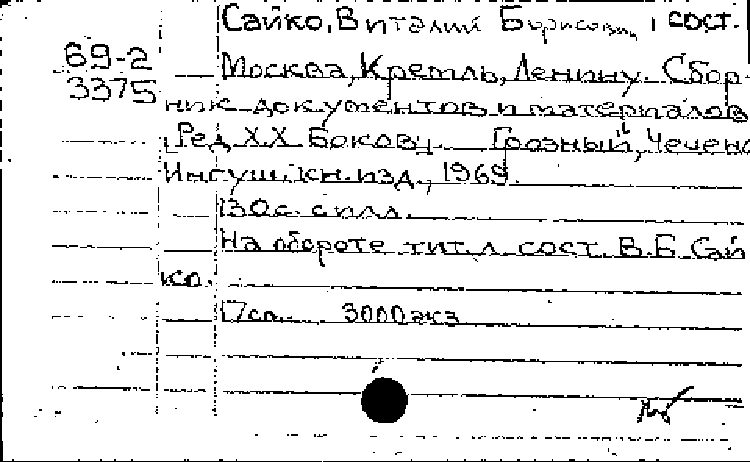 Сайко, Виталий Борисович, сост.
69-2 Москва, Кремль, Ленину. Сбор-
3375 ник документов и материалов
[Ред. Х.Х. Боков]. Грозный, Чечено-
Ингуш. кн. изд., 1969.
130 с. с илл.
На обороте тит. л. сост. В.Б. Сай
ко.
3000 экз